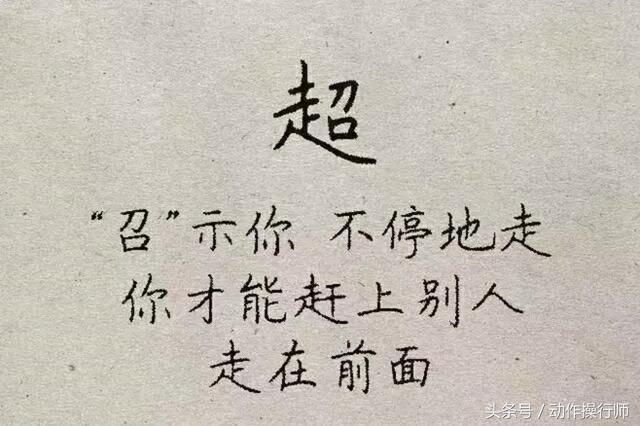 超
“召”示你 不停地走
你才能赶上别人
走在前面
头条号 / 动作操行师